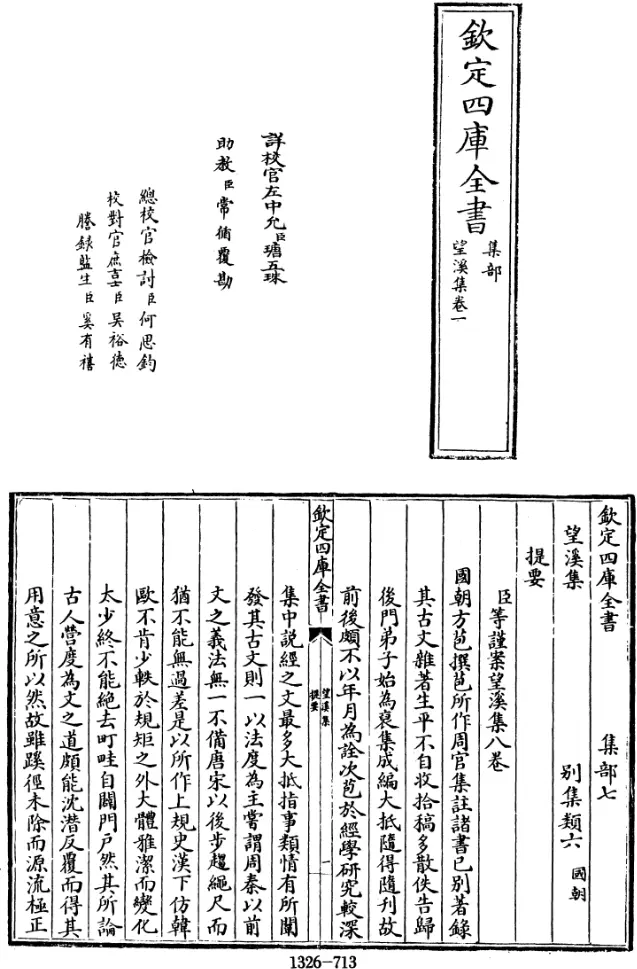 欽定四庫全書
集部
望溪集卷一
詳校官左中允臣瑭五珠
助教臣常循覆勘
總校官檢討臣何思鈞
校對官庶吉士臣吳裕德
謄錄監生臣奚有禧
欽定四庫全書 集部七
望溪集 別集類六 國朝
提要
臣等謹案望溪集八卷
國朝方苞撰苞所作周官集註諸書已別著錄
其古文雜著生平不自收拾稿多散佚告歸
後門弟子始為裒集成編大抵隨得隨刊故
前後頗不以年月為詮次苞於經學研究較深
欽定四庫全書
望溪集
提要
一
集中說經之文最多大抵指事類情有所闡
發其古文則一以法度為主嘗謂周秦以前
文之義法無一不備唐宋以後步趨繩尺而
猶不能無過差是以所作上規史漢下仿韓
歐不肯少軼於規矩之外大體雅潔而變化
太少終不能絕去町畦自闢門戶然其所論
古人營度為文之道頗能沈潛反覆而得其
用意之所以然故雖蹊徑未除而源流極正
1326-713